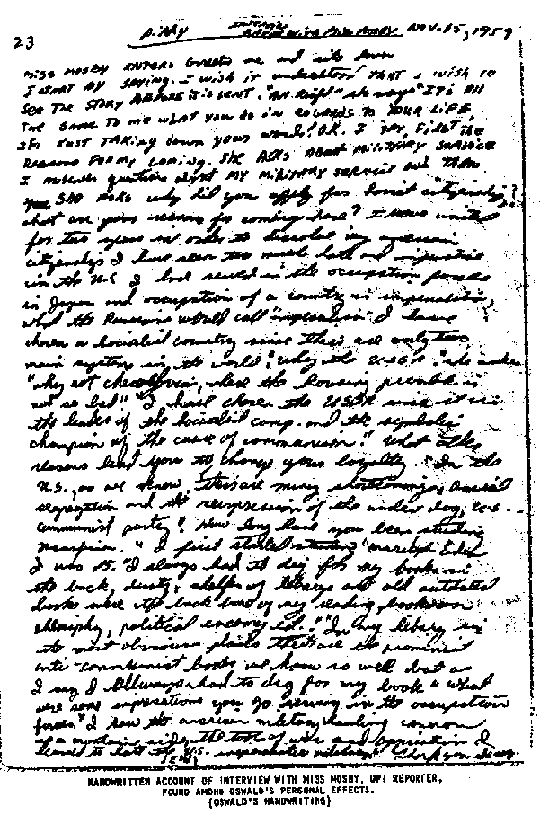 23
Diary INTERVIEW NOV. 15, 1959
WITH MISS MOSBY
MISS MOSBY ENTERS Greets me and sits down
I START BY SAYING. I WISH IT understood THAT I WISH TO
SEE THE STORY BEFORE IT IS SENT. "All Right" she says "It's all
THE SAME TO ME what YOU do in REGARDS TO YOUR LIFE
I'm JUST TAKING down your words" OK. I say, First the
REASONS FOR MY coming. SHE ASKS ABOUT MILITARY SERVICE
I ANSWER questions about MY MILITARY SERVICE and THEN
SHE ASKS why did you apply for Soviet citizenship?
what are your reasons for coming here? I have waited
for two years in order to dissolve my american
citizenship I have seen too much hate and injustice
in the U.S I had served in the occupation forces
in Japan and occupation of a country is imperialistic,
what the Russians would call "imperialism" I have
chosen a socialist country since there are only two
main systems in the world. "why the USSR" she asks
"why not Czechoslovia, where the housing problem is
not so bad" "I have chosen the USSR since it is
the leader of the socialist camp and the symbolic
champion of the cause of communism". What other
reasons lead you to change your loyalty. "In the
U.S., as we know there are many shortcomings, racial
segregation and the suppression of the under dog, U.S.
communist party", How long have you been studying
Marxism. " I first started studying marxism when
I was 15. "I always had to dig for my books in
the back, dusty shelves of libarys and old outdated
books were the back bone of my reading books on
philosophy, political economy ect." "In any libary in
the most obvious places there are the prominent
anti-communist books we know so well but as
I say I allways had to dig for my books "what
were some impressions you got serving in the occupation
forces" I saw the american military
I
learned to hate the U.S. imperialistic military.
(END)
HANDWRITTEN ACCOUNT OF INTERVIEW WITH MISS MOSBY, UPI REPORTER,
FOUND AMONG OSWALD'S PERSONAL EFFECTS.
(OSWALD'S HANDWRITING)